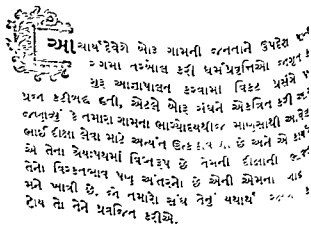 આચાર્યદેવશ્રીએ બોરૂ ગામની જનતાને ઉપદેશ
રગમા તરબોળ કરી ધર્મપ્રવૃત્તિઓ જાગૃત
ગુરૂ આજ્ઞાપાલન કરવામાં વિકટ પ્રસંગે
પ્રશ્ન કઠીણ હતો, એટલે બોરૂ સંઘને એકત્રિત કરી
જણાવ્યું કે તમારા ગામના ભાગ્યોદયથીજ માણસાથી
ભાઈ દીક્ષા લેવા માટે અત્યંત ઉત્કંઠાવાળા છે અને એ
એ તેના શ્રેયઃપથમાં વિઘ્નરૂપ છે તેમની દીક્ષાની
તેનો વિરક્તભાવ પણ અંતરનો છે એની એમના
મને ખાત્રી છે, જો તમારો સંઘ તેનું યથાર્થ
હોય તો તેને પ્રવ્રજિત કરીએ.